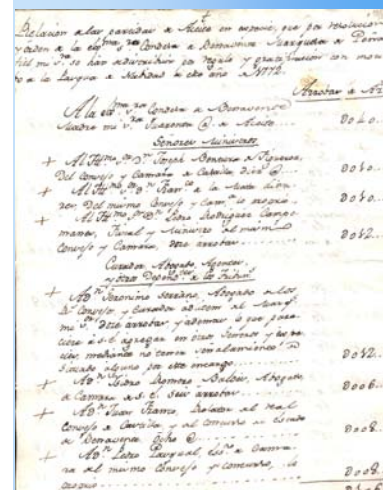 Relacion de las partidas de Aceite en especie, que por resolucion
y orden de la Condesa de Benavente Marquesa de Peña
fiel mi s.ra se han de distribuir por regalo y gratificacion con mo
de la Pasqua de Navidad de este año de 1772.
Arrobas de
A la Condesa de Benavente
Madre mi s.ra Quarenta @ de Aceite... Do40..
Señores Ministros
+ Al Ill.mo s.or D.n Joseph Ventura de Figueroa,
del Consejo y Camara de Castilla diez @... Do10..
+ Al Ill.mo s.or D.n Fran.co de la Mata Lina
res, del mismo Consejo y Cam.a lo mismo... Do10..
+ Al Ill.mo s.or D.n Pedro Rodriguez Campo
manes, Fiscal y Ministro del mismo
Consejo y Camara, doce arrobas... Do12..
Curador, Abogado, Agentes,
y otros
+ A D.n Geronimo Serrano, Abogado de los
R.s Consejos, y Curador ad litem del Marq.s
mi s.or doce arrobas, y ademas lo que pare
ciere à S.E. agregar en otros generos y espe
cies, mediante no tener señalamiento
alguno por este encargo... Do12..
+ A D.n Isidro Romero Abogado
de Camara de S.E. seis arrobas... Doo6..
+ A D.n Juan Franco, Relator del Real
Consejo de Castilla y del concurso del Estado
de Benavente, Ocho @... Doo8..
+ A D.n Pedro Pasqual, Es.no de Cama
ra del mismo Consejo y concurso, lo
mismo... Doo8..